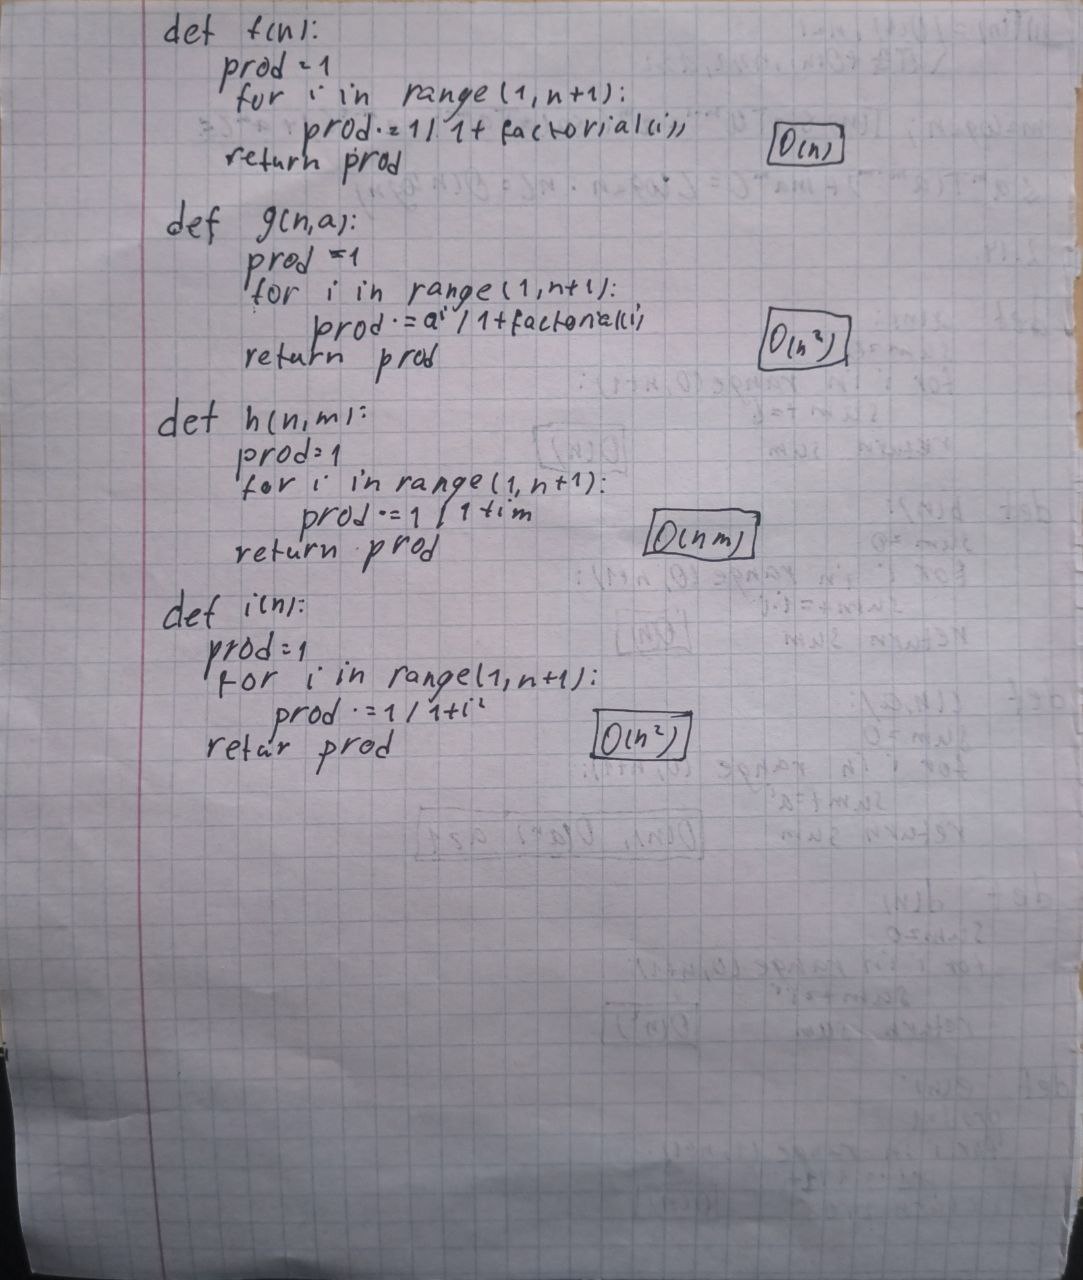 def f(n):
prod = 1
for i in range(1, n+1):
prod ·= 1/ 1 + factorial(i))
return prod
O(n)
def g(n,a):
prod = 1
for i in range(1, n+1):
prod ·= aⁱ / 1 + factorial(i)
return prod
O(n²)
def h(n,m):
prod = 1
for i in range(1, n+1):
prod ·= 1 / 1 + im
return prod
O(nm)
def i(n):
prod = 1
for i in range(1, n+1):
prod ·= 1 / 1 + i²
retur prod
O(n²)